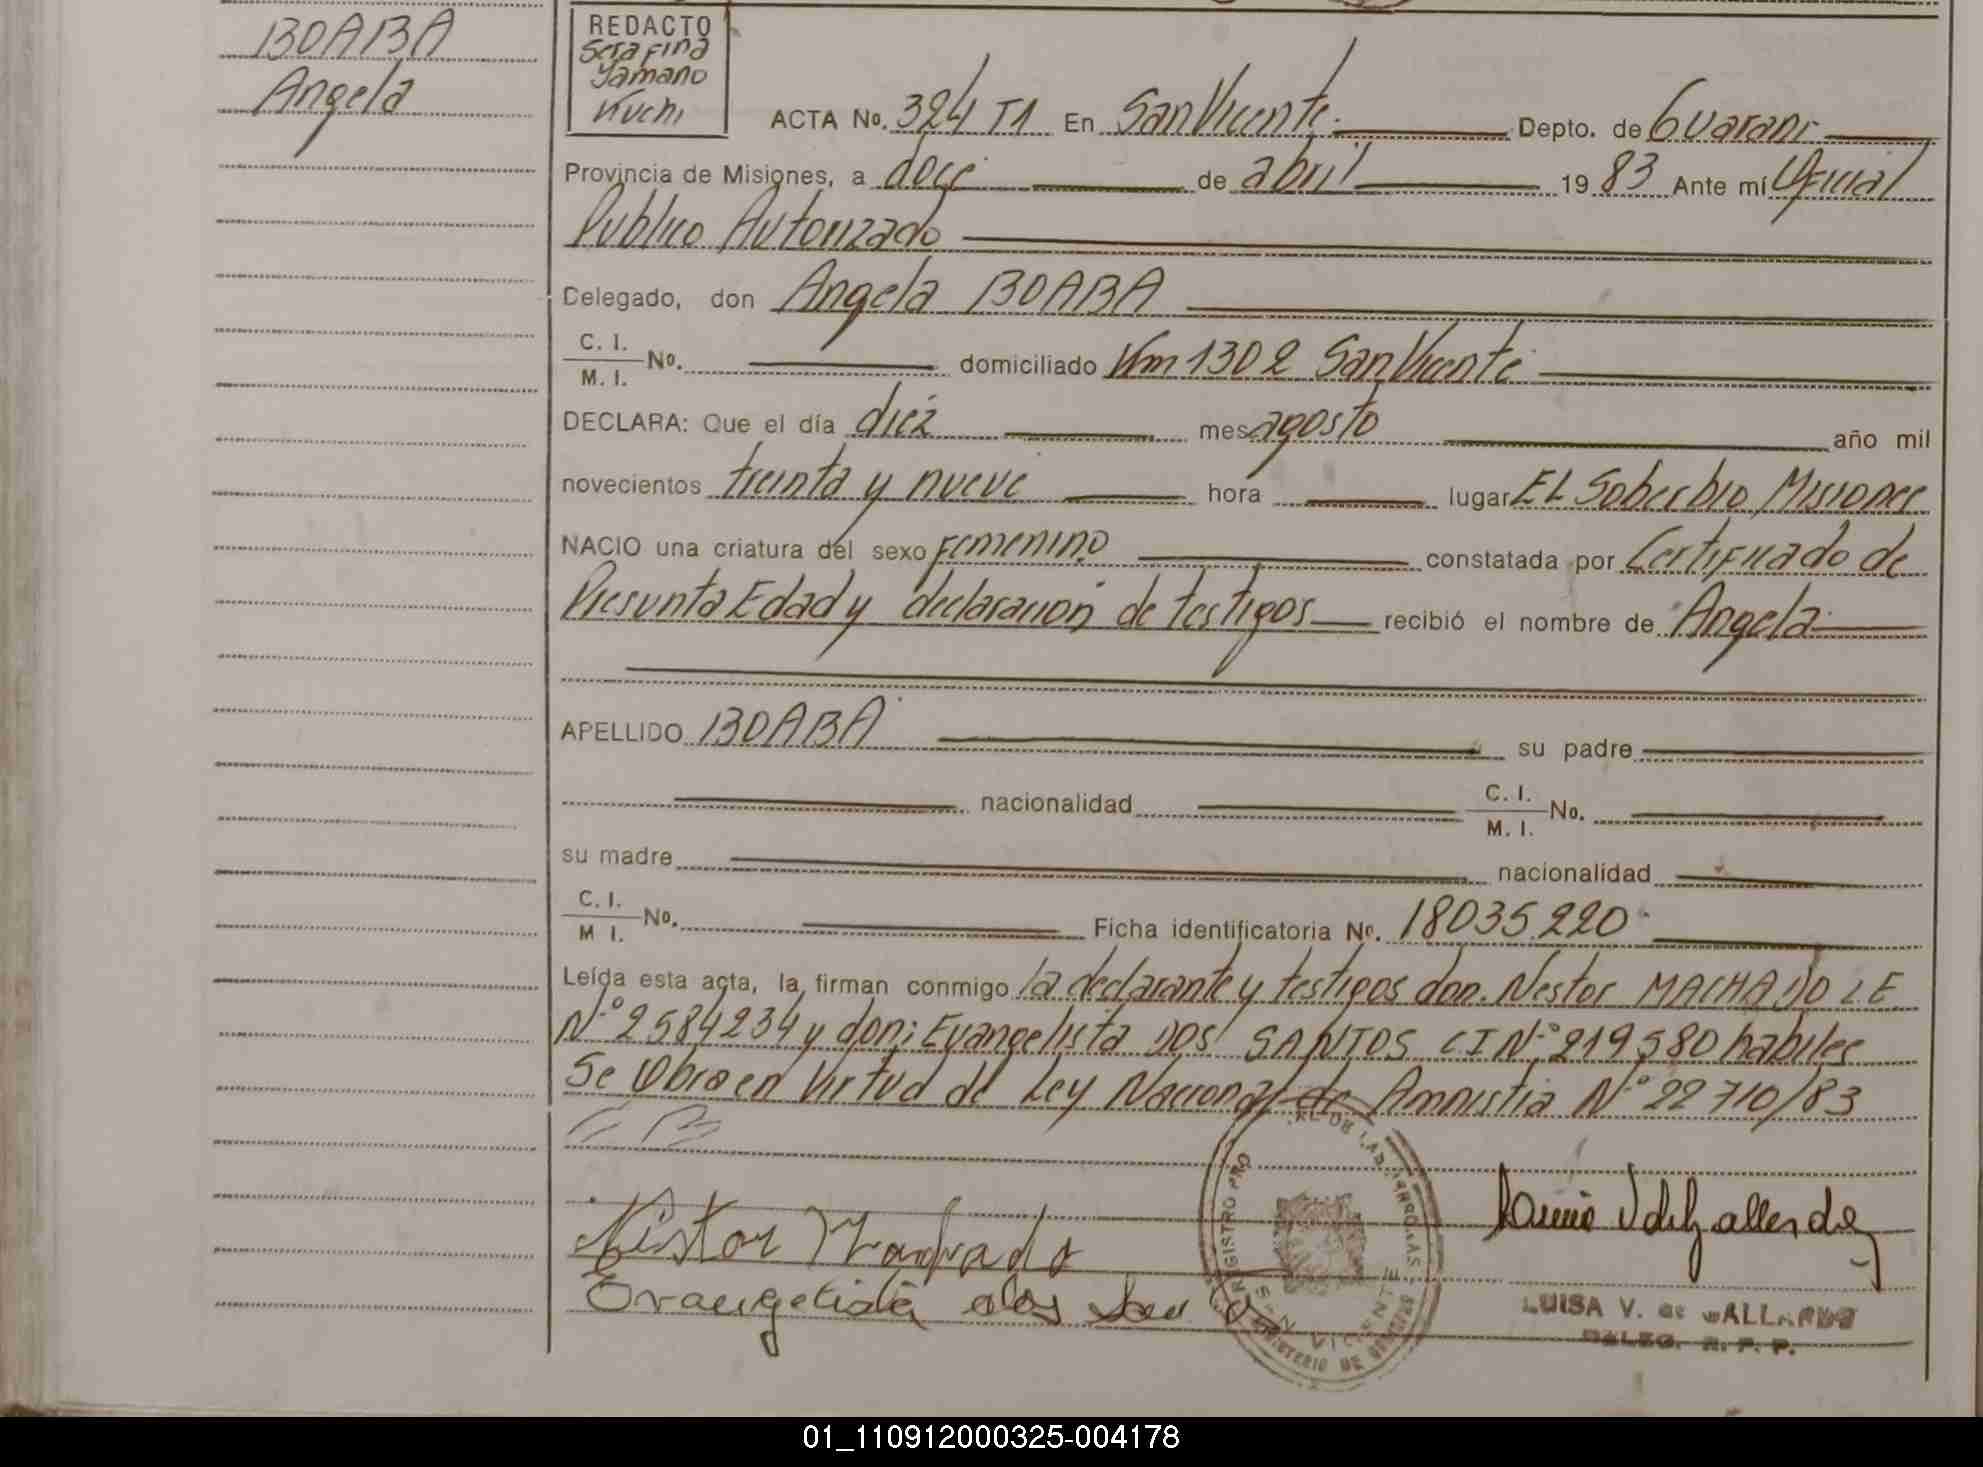 BOABA
Angela
REDACTO
Serafina
Yamano
Kuchi
ACTA No. 324 T1 En San Vicente Depto. de Guarani
Provincia de Misiones, a doce de abril 1983 Ante mí Oficial
Publico Autorizado
Delegado, don Angela BOABA
C. I.
M. I. No. domiciliado Km 1302 San Vicente
DECLARA: Que el día diez mes agosto año mil
novecientos treinta y nueve hora lugar EL Soberbio, Misiones
NACIO una criatura del sexo femenino constatada por Certificado de
Presunta Edad y declaracion de testigos recibió el nombre de Angela
APELLIDO BOABA su padre
nacionalidad C. I.
M. I. No.
su madre nacionalidad
C. I.
M I. No. Ficha identificatoria No. 18035220
Leída esta acta, la firman conmigo la declarante y testigos don. Nestor MACHADO LE
N° 2584234 y don: Evangelista DOS SANTOS CI N° 219580 habiles
Se Obro en Virtud de Ley Nacional de Amnistia N° 22710/83
Nestor Machado
Evangelista dos
REGISTRO PRO
SAN VICENTE
MINISTERIO DE
LUISA V. de GALLARDO
DELEG. R. P. P.
01_110912000325-004178